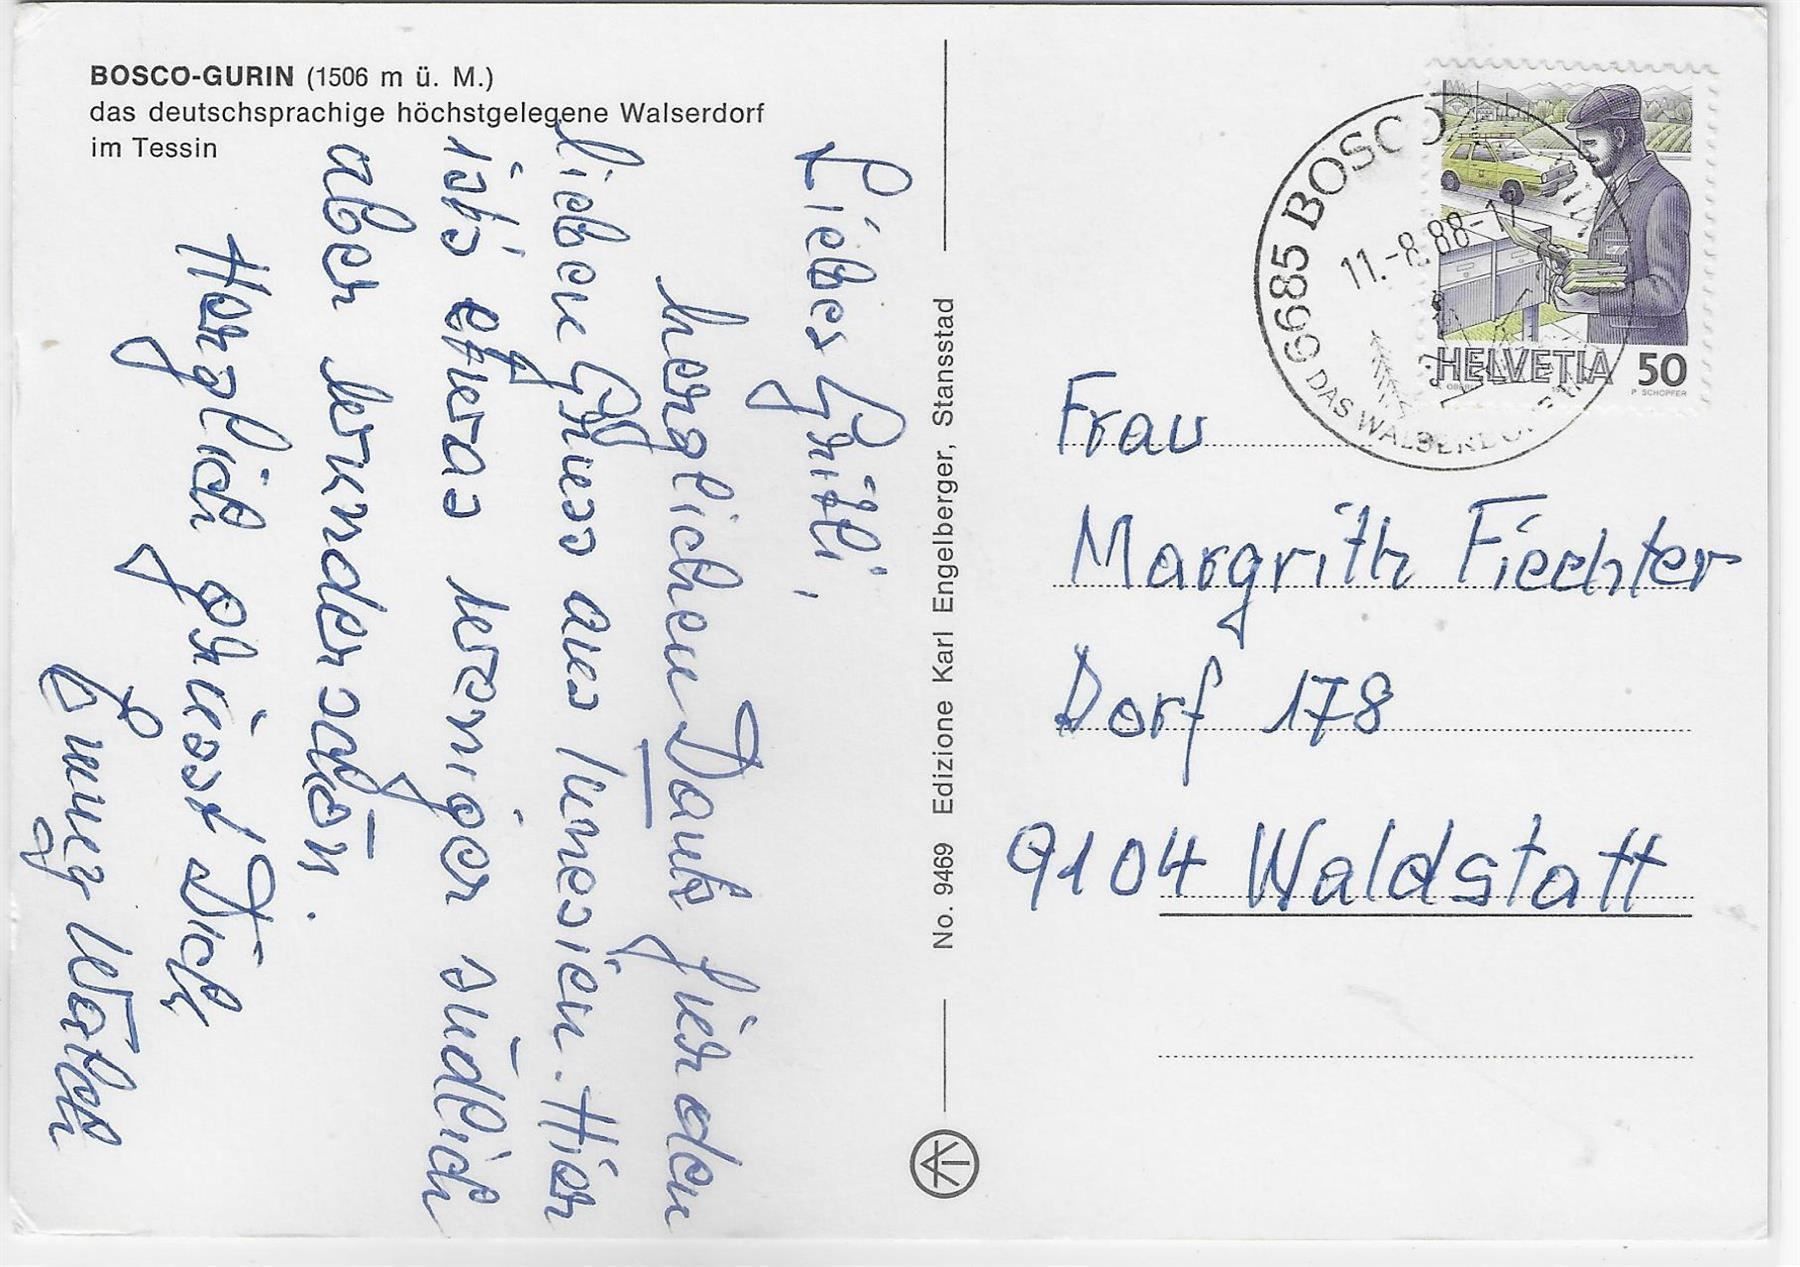 BOSCO-GURIN (1506 m ü. M.)
das deutschsprachige höchstgelegene Walserdorf
im Tessin
Liebes Gritli,
herzlichen Dank für den
lieben Gruss aus Tunesien. Hier
ists etwas weniger südlich
aber wunderschön.
Herzlich grüsst Dich
Emmy
No. 9469 Edizione Karl Engelberger, Stansstad
6685 BOSCO
11.-8.88-1
DAS WALSERDORF
HELVETIA 50
P SCHOPFER
Frau
Margrith Fiechter
Dorf 178
9104 Waldstatt